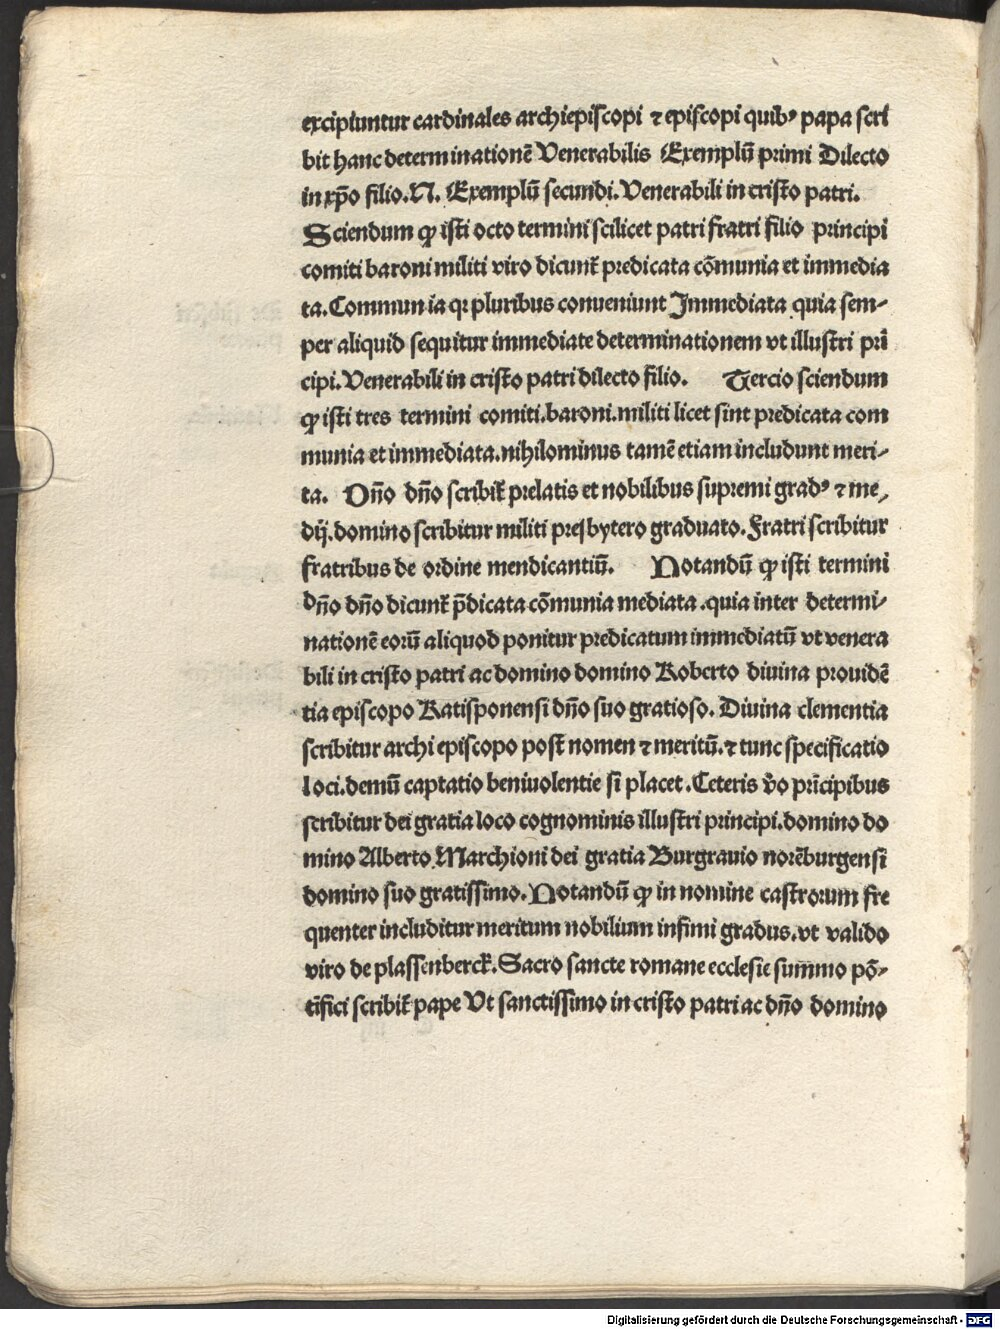 excipiuntur cardinales archiepiscopi ⁊ episcopi quibꝰ papa scri
bit hanc determinationē Venerabilis Exemplū primi Dilecto
in xp̄o filio.N. Exemplū secundi.Venerabili in cristo patri.
Sciendum ꝙ isti octo termini scilicet patri fratri filio principi
comiti baroni militi viro dicunt᷑ predicata cōmunia et immedia
ta.Communia qꝛ pluribus conueniunt Immediata quia sem-
per aliquid sequitur immediate determinationem vt illustri prī
cipi.Venerabili in cristo patri dilecto filio. Tercio sciendum
ꝙ isti tres termini comiti.baroni.militi licet sint predicata com
munia et immediata.nihilominus tamē etiam includunt meri-
ta. Dn̄o dn̄o scribit᷑ prelatis et nobilibus supremi gradꝰ ⁊ me,
dij.domino scribitur militi presbytero graduato.Fratri scribitur
fratribus de ordine mendicantiū. Notandū ꝙ isti termini
dn̄o dn̄o dicunt᷑ p̄dicata cōmunia mediata.quia inter determi-
nationē eorū aliquod ponitur predicatum immediatū vt venera
bili in cristo patri ac domino domino Roberto diuina prouidē
tia episcopo Ratisponensi dn̄o suo gratioso. Diuina clementia
scribitur archi episcopo post nomen ⁊ meritū.⁊ tunc specificatio
loci.demū captatio beniuolentie si placet.Ceteris v̄o prīcipibus
scribitur dei gratia loco cognominis illustri principi.domino do
mino Alberto Marchioni dei gratia Burgrauio norēburgensi
domino suo gratissimo.Notandū ꝙ in nomine castrorum fre
quenter includitur meritum nobilium infimi gradus.vt valido
viro de plassenberck.Sacro sancte romane ecclesie summo pō-
tifici scribit᷑ pape Vt sanctissimo in cristo patri ac dn̄o domino
Digitalisierung gefördert durch die Deutsche Forschungsgemeinschaft - DFG